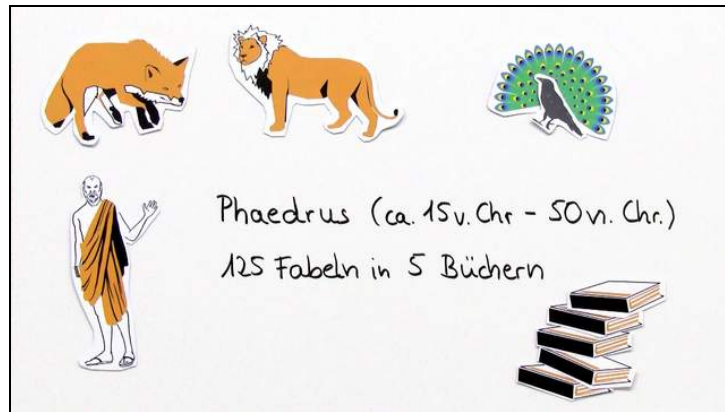 Phaedrus (ca. 15 v. Chr - 50 n. Chr.)
125 Fabeln in 5 Büchern